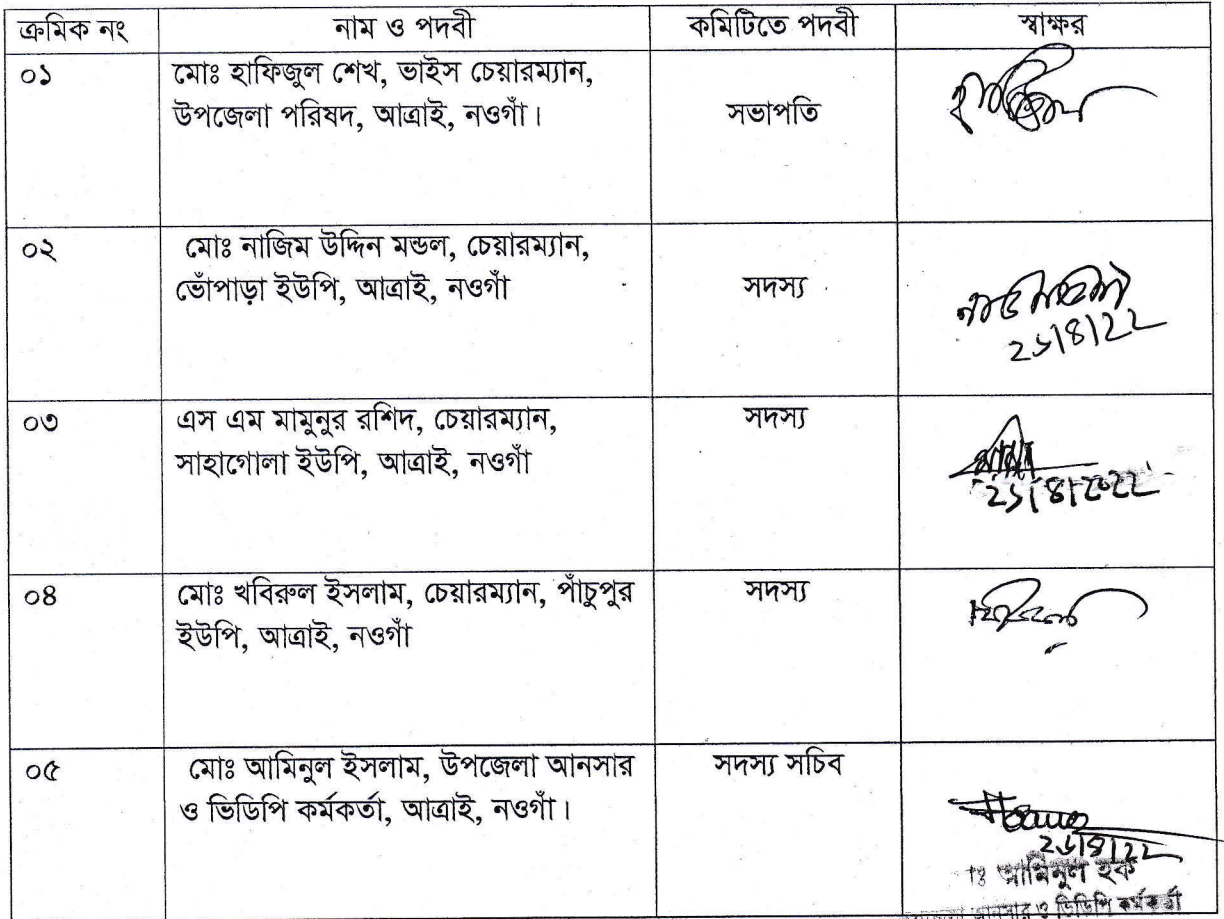 ক্রমিক নং নাম ও পদবী কমিটিতে পদবী স্বাক্ষর
০১ মোঃ হাফিজুল শেখ, ভাইস চেয়ারম্যান,
উপজেলা পরিষদ, আত্রাই, নওগাঁ। সভাপতি
০২ মোঃ নাজিম উদ্দিন মন্ডল, চেয়ারম্যান,
ভোঁপাড়া ইউপি, আত্রাই, নওগাঁ সদস্য
২১/৪/২২
০৩ এস এম মামুনুর রশিদ, চেয়ারম্যান, সদস্য
সাহাগোলা ইউপি, আত্রাই, নওগাঁ
২১/৪/২০২২
০৪ মোঃ খবিরুল ইসলাম, চেয়ারম্যান, পাঁচুপুর সদস্য
ইউপি, আত্রাই, নওগাঁ
০৫ মোঃ আমিনুল ইসলাম, উপজেলা আনসার সদস্য সচিব
ও ভিডিপি কর্মকর্তা, আত্রাই, নওগাঁ।
২১/৪/২২
আমিনুল হক
আনসার ও ভিডিপি কর্মকর্তা